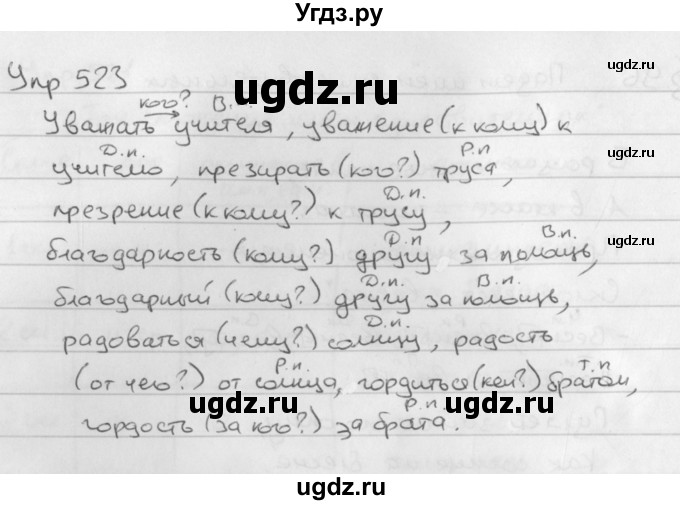 Угдз.ру
ugdz.ru ugdz.ru
Упр 523
ugdz.ru
кого? В.п.
Уважать учителя, уважение (к кому) к
Д.п. Р.п
учителю, презирать (кого?) труса,
ugdz.ru ugdz.ru
Д.п.
презрение (к кому?) к трусу,
Д.п В.п.
благодарность (кому?) другу за помощь,
ugdz.ru
Д.п. В.п.
благодарный (кому?) другу за помощь,
ugdz.ru ugdz.ru
Д.п.
радоваться (чему?) солнцу, радость
Р.п. Т.п
(от чего?) от солнца, гордиться (кем?) братом,
ugdz.ru ugdz.ru
Р.п
гордость (за кого?) за брата.
ugdz.ru
ugdz.ru